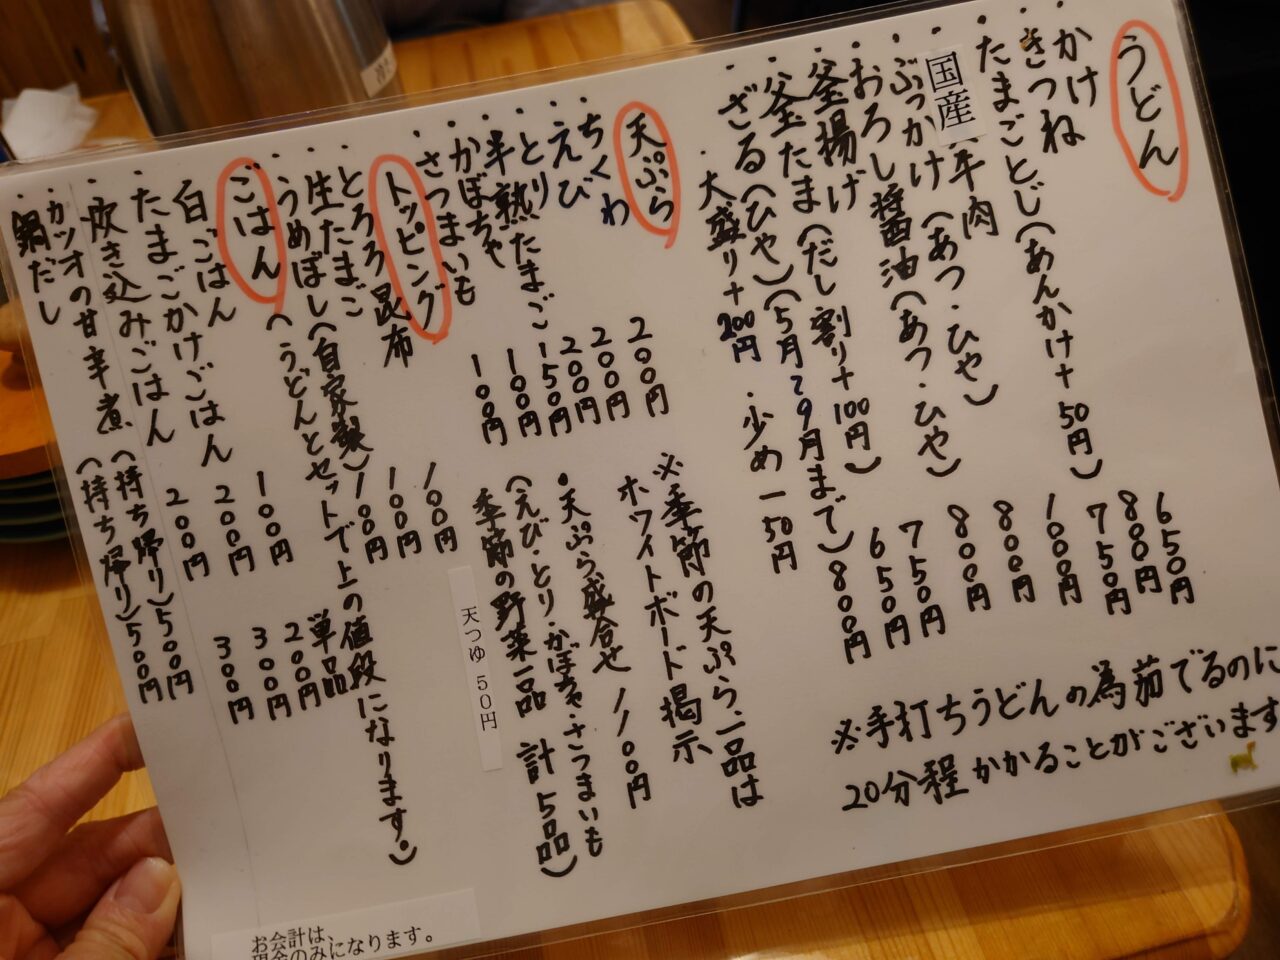 うどん
・かけ 650円
・きつね 800円
・たまごとじ(あんかけ+50円) 750円
・国産牛肉 1000円
・ぶっかけ(あつ・ひや) 800円
・おろし醤油(あつ・ひや) 800円
・釜揚げ 750円
・釜たま(だし割り+100円) 650円
・ざる(ひや)(5月〜9月まで) 800円
・大盛り+200円 ・少め−50円
※手打ちうどんの為茹でるのに
20分程かかることがございます
天ぷら
・ちくわ 200円
・えび 200円
・とり 200円
・半熟たまご 150円
・かぼちゃ 100円
・さつまいも 100円
※季節の天ぷら、一品は
ホワイトボード掲示
・天ぷら盛合せ 1100円
(えび・とり・かぼちゃ・さつまいも
季節の野菜一品 計5品)
天つゆ 50円
トッピング
・とろろ昆布 100円
・生たまご 100円
・うめぼし(自家製) 100円
ごはん(うどんとセットで上の値段になります。)
単品
・白ごはん 100円 200円
・たまごかけごはん 200円 300円
・炊き込みごはん 200円 300円
・カツオの甘辛煮(持ち帰り)500円
・鍋だし(持ち帰り)500円
お会計は、
現金のみになります。